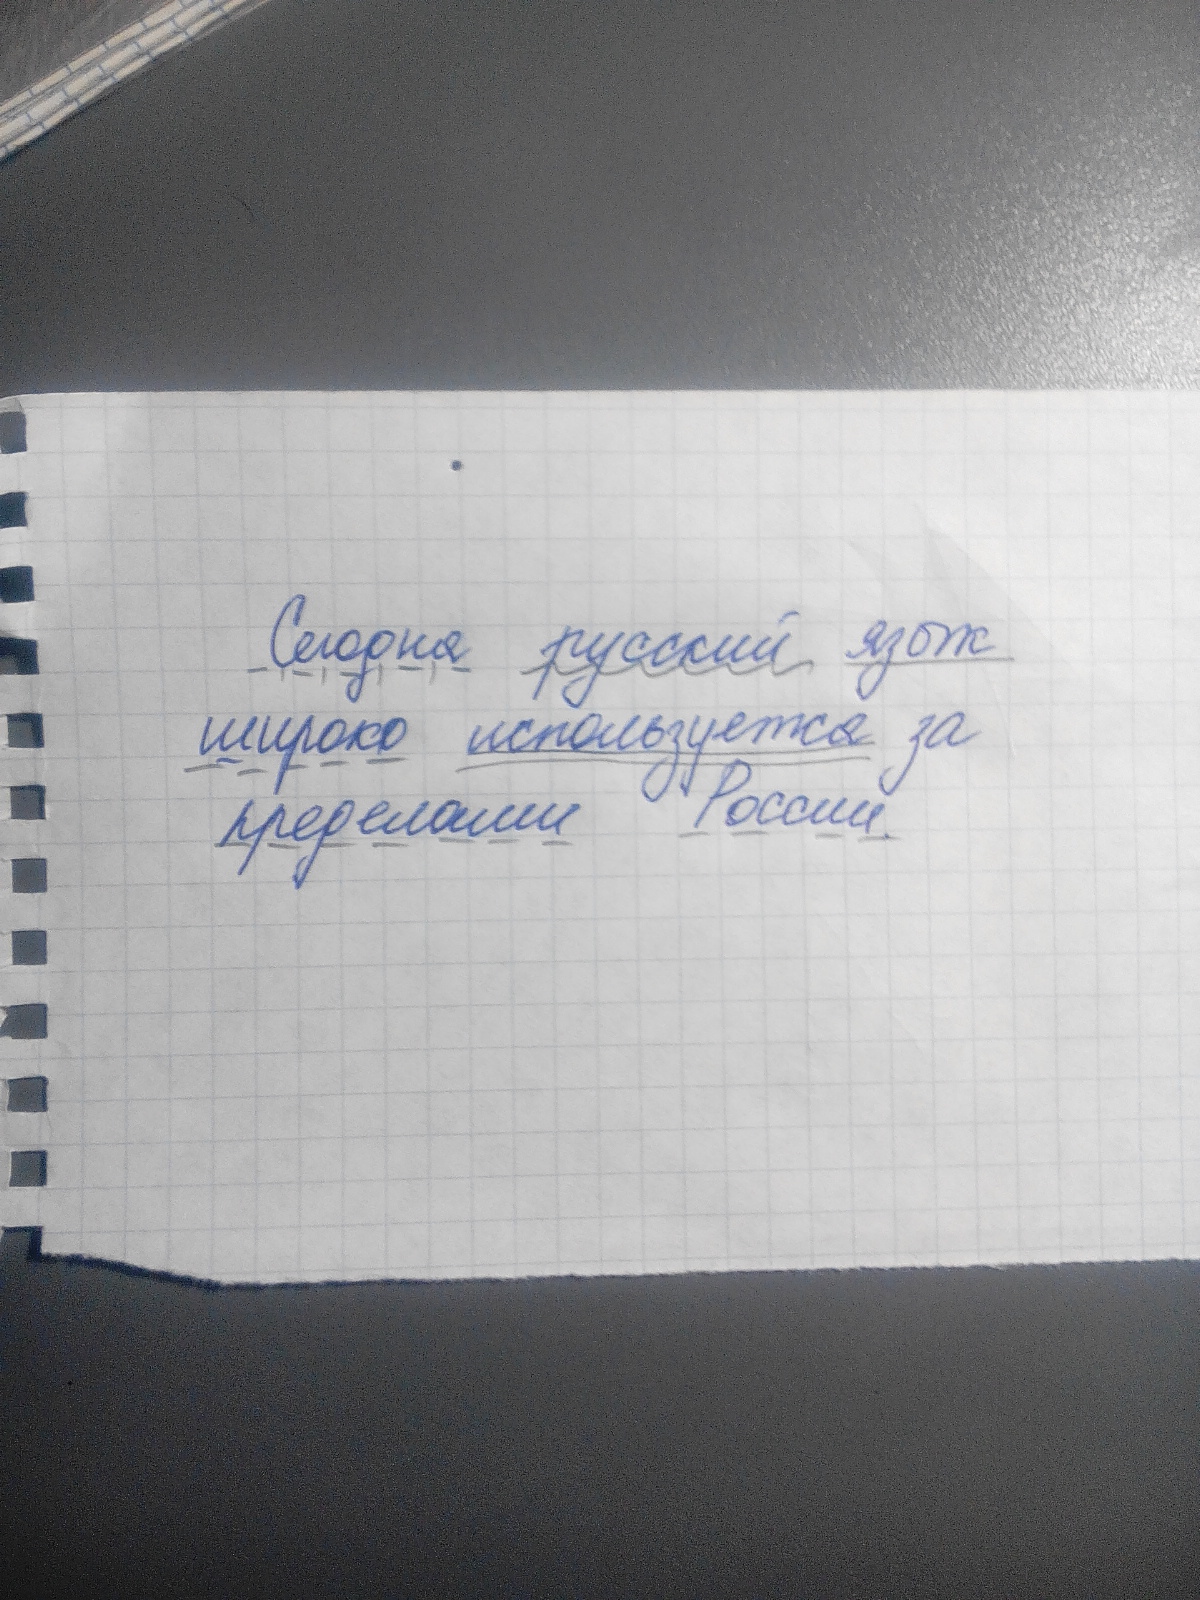 Сегодня русский язык
широко используется за
пределами России.